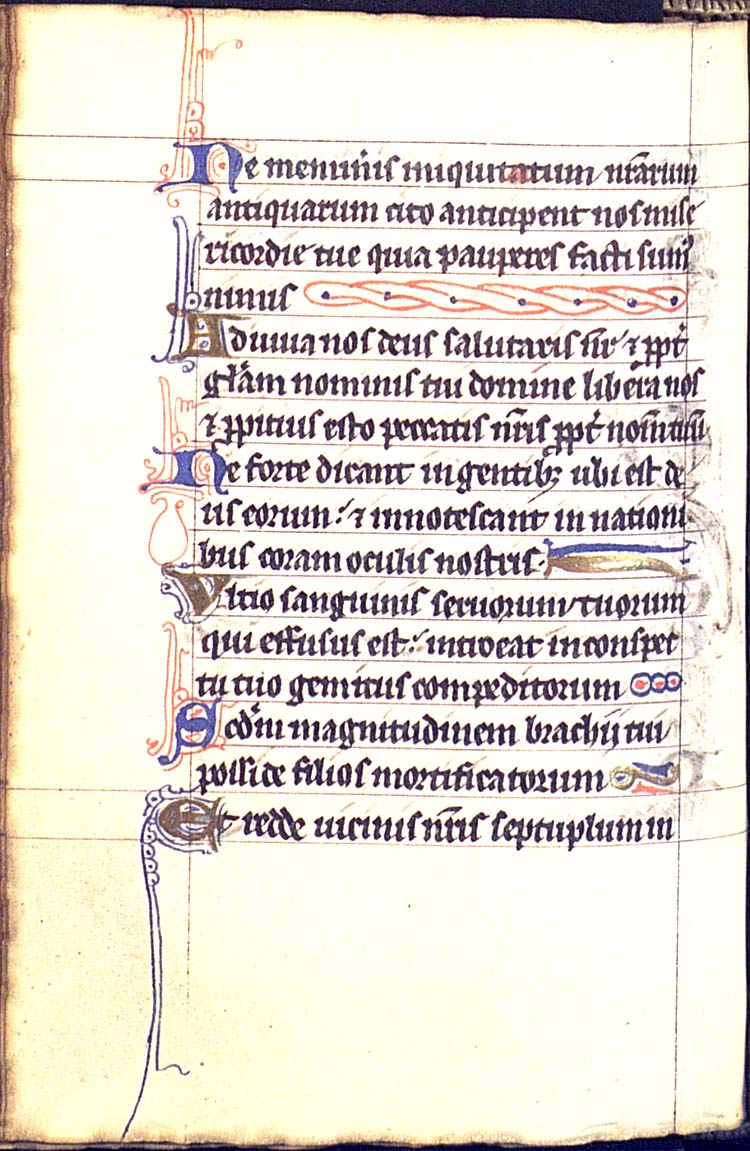 Ne meminis iniquitatum nr̄arum
antiquarum cito anticipent nos mise
ricordie tue quia pauperes facti sumꝰ
nimis
Adiuua nos deus salutaris nr̄ ⁊ ꝓpt̕
gl̄am nominis tui domine libera nos
⁊ ꝓpitius esto peccatis nr̄is ꝓpt̕ nom̄ tuū
Ne forte dicant in gentibꝫ ubi est de
us eorum: ⁊ innotescant in nationi
bus coram oculis nostris.
Vltio sanguinis seruorum tuorum
qui effusus est: introeat in conspec
tu tuo gemitus compeditorum
Scd̄m magnitudinem brachij tui
posside filios mortificatorum
Et redde uicinis nr̄is septuplum in